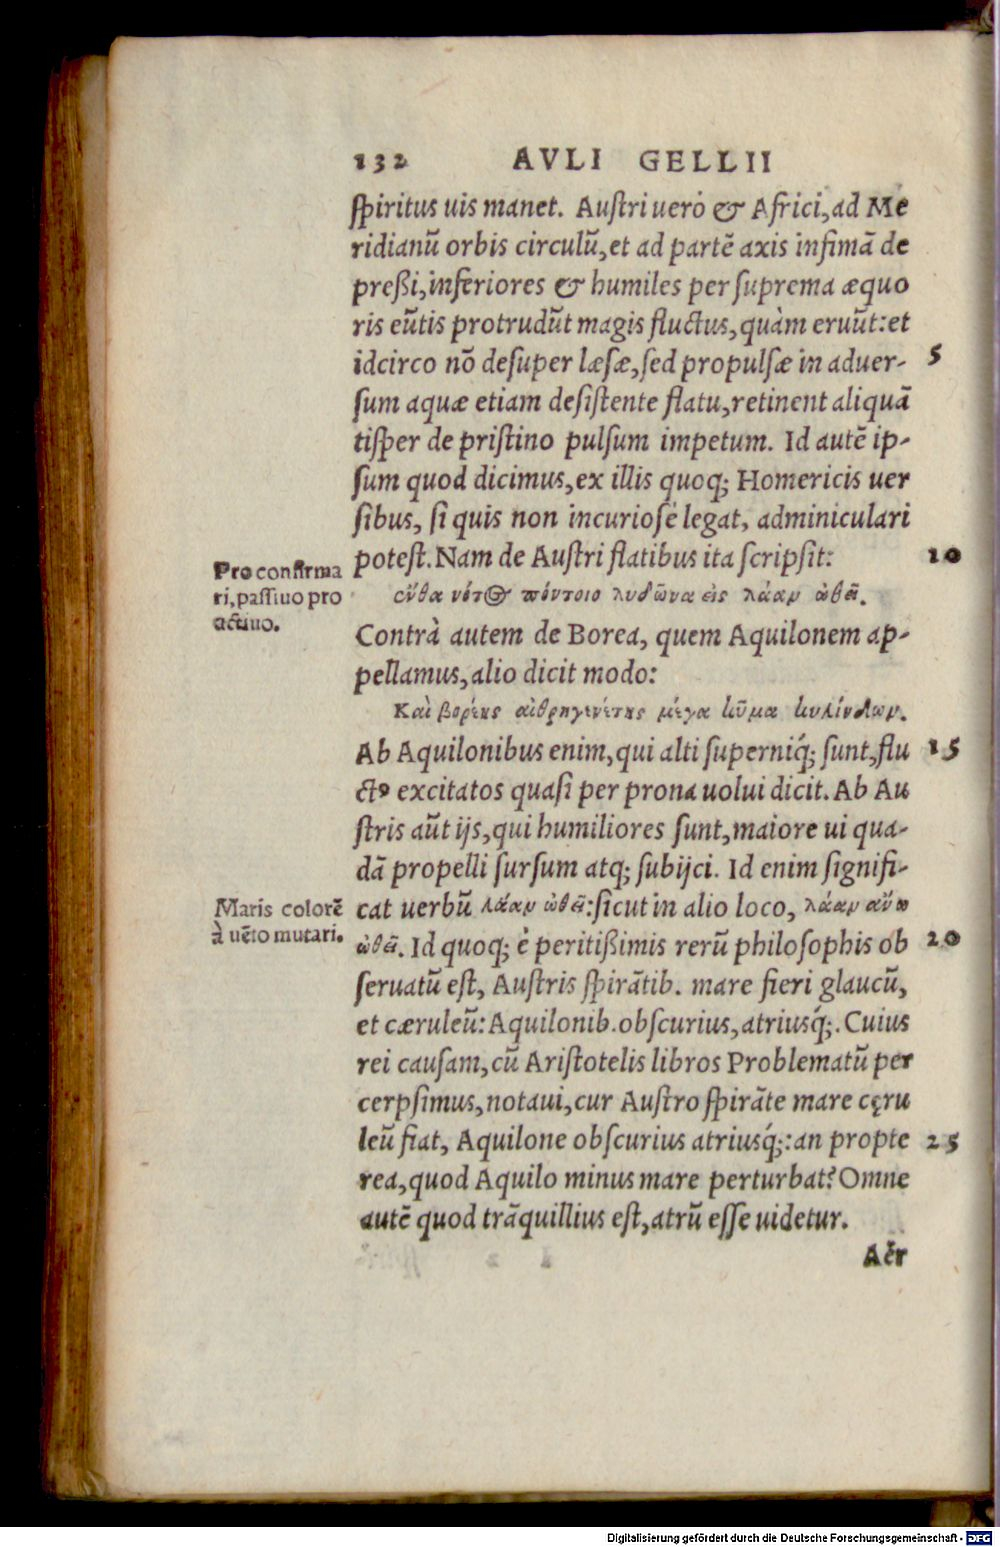 132 AVLI GELLII
ſpiritus uis manet. Auſtri uerò & Africi, ad Me
ridianũ orbis circulũ, et ad partẽ axis infimã de
preßi, inferiores & humiles per ſuprema æquo
ris eũtis protrudũt magis fluctus, quàm eruũt: et
idcirco nõ deſuper læſæ, ſed propulſæ in aduer-
5
ſum aquæ etiam deſiſtente flatu, retinent aliquã
tiſper de priſtino pulſum impetum. Id autẽ ip-
ſum quod dicimus, ex illis quoq; Homericis uer
ſibus, ſi quis non incurioſè legat, adminiculari
poteſt. Nam de Auſtri flatibus ita ſcripſit:
10
Pro confirma
ri, paſſiuo pro
actiuo.
ἔνθα νότος πόντοιο κλυδῶνα εἰς λάαν ὠθεῖ.
Contrà autem de Borea, quem Aquilonem ap-
pellamus, alio dicit modo:
Καὶ βορέης αἰθρηγενέτης μέγα κῦμα κυλίνδων.
Ab Aquilonibus enim, qui alti ſuperniq́; ſunt, flu
15
ctꝰ excitatos quaſi per prona uolui dicit. Ab Au
ſtris aũt ijs, qui humiliores ſunt, maiore ui qua-
dã propelli ſurſum atq; ſubijci. Id enim ſignifi-
cat uerbũ λάαν ὠθεῖ: ſicut in alio loco, λάαν ἄνω
Maris colorẽ
à uẽto mutari.
ὠθεῖ. Id quoq; è peritißimis rerũ philoſophis ob
20
ſeruatũ eſt, Auſtris ſpirãtib. mare fieri glaucũ,
et cæruleũ: Aquilonib. obſcurius, atriusq́;. Cuius
rei cauſam, cũ Ariſtotelis libros Problematũ per
cerpſimus, notaui, cur Auſtro ſpirãte mare cęru
leũ fiat, Aquilone obſcurius atriusq́;: an propte
25
rea, quod Aquilo minus mare perturbat? Omne
autẽ quod trãquillius eſt, atrũ eſſe uidetur.
Aër
Digitalisierung gefördert durch die Deutsche Forschungsgemeinschaft - DFG